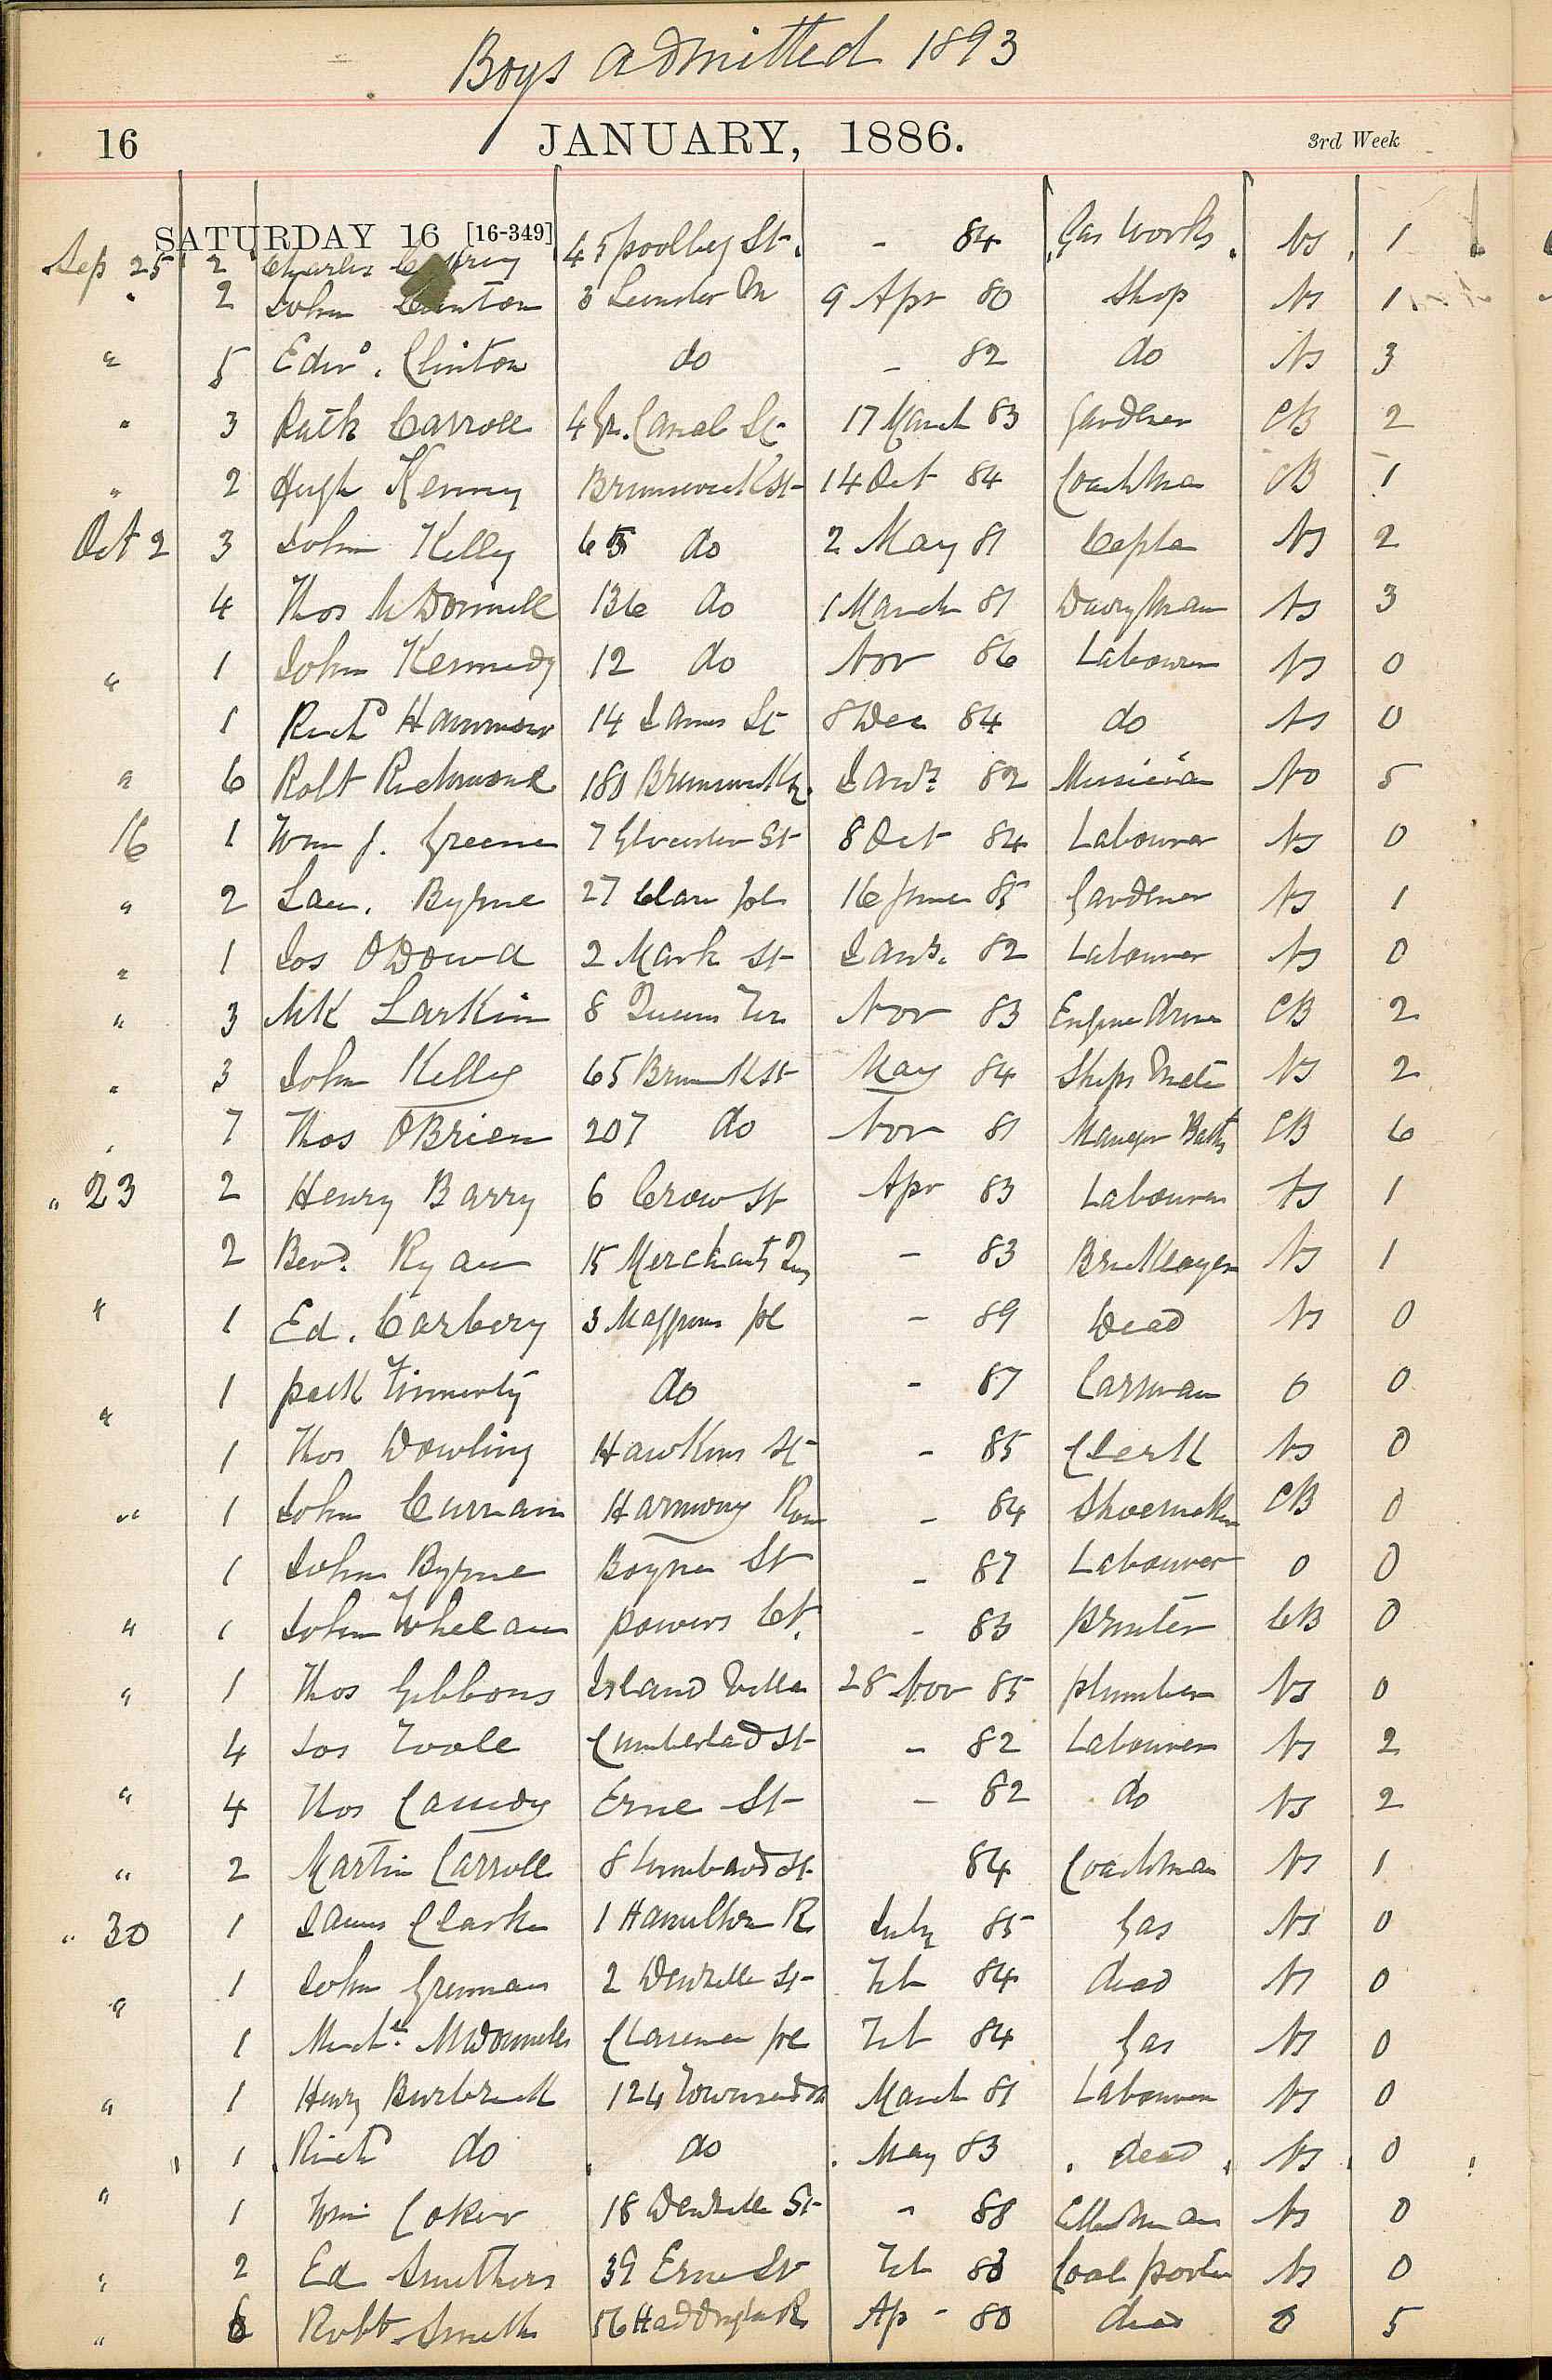 Boys admitted 1893
16 JANUARY, 1886. 3rd Week
SATURDAY 16 [16-349]
Sep 25 2 Charles 45 poolbeg St. - 84 Gas Works Ns 1
" 2 John Clinton 3 Leinster M 9 Apr 80 Shop Ns 1
" 5 Edwd. Clinton do - 82 do Ns 3
" 3 Patk Carroll 4 Gr. Canal St 17 March 83 Gardener CB 2
" 2 Hugh Kenny Brunswick St 14 Oct 84 Coachman CB 1
Oct 2 3 John Kelly 65 do 2 May 81 Ns 2
4 Thos McDonnell 136 do 1 March 81 Dairyman Ns 3
" 1 John Kennedy 12 do Nov 86 Labourer Ns 0
1 Richd 14 James St 8 Dec 84 do Ns 0
" 6 Robt Richmond 180 Brunswick Jany 82 Musician No 5
16 1 Wm J. Greene 7 Glocester St 8 Oct 84 Labourer Ns 0
" 2 Lau. Byrne 27 Clare pl 16 June 85 Gardener Ns 1
" 1 Jos ODowd 2 Mark St Jany. 82 Labourer Ns 0
" 3 Mk Larkin 8 Queens Ter Nov 83 Engine driver CB 2
" 3 John Kelly 65 Brunsk St May 84 Ships Mate Ns 2
" 7 Thos OBrien 207 do Nov 81 Manager Baths CB 6
" 23 2 Henry Barry 6 Crow St Apr 83 Labourer Ns 1
2 Ryan 15 Merchants Qy - 83 Bricklayer Ns 1
" 1 Ed. Carbery 3 pl - 89 Dead Ns 0
1 patk Finnerty do - 87 Carman 0 0
" 1 Thos Dowling Hawkins St - 85 Clerk Ns 0
" 1 John Curran Harmony Row - 84 Shoemaker CB 0
1 John Byrne Boyne St - 87 Labourer 0 0
" 1 John Whelan powers Ct. - 83 printer CB 0
" 1 Thos Gibbons Island Villa 28 Nov 85 plumber Ns 0
4 Jos Toole Cumberlad St - 82 Labourer Ns 2
" 4 Thos Cassidy Erne St - 82 do Ns 2
" 2 Martin Carroll 8 Lombard St 84 Coachman Ns 1
" 30 1 James Clarke 1 Hamilton R July 85 Gas Ns 0
" 1 John Grennan 2 Denzille St Feb 84 dead Ns 0
1 McDonnell Clarence pl Feb 84 Gas Ns 0
" 1 Henry 124 Townsend St March 81 Labourer Ns 0
1 Richd do do May 83 dead Ns 0
" 1 Wm Coker 18 Denzille St - 88 Ns 0
" 2 Ed Smithers 39 Erne St Feb 83 Coal porter Ns 0
" 6 Robt Smith 56 Haddington R Ap - 80 dead 0 5